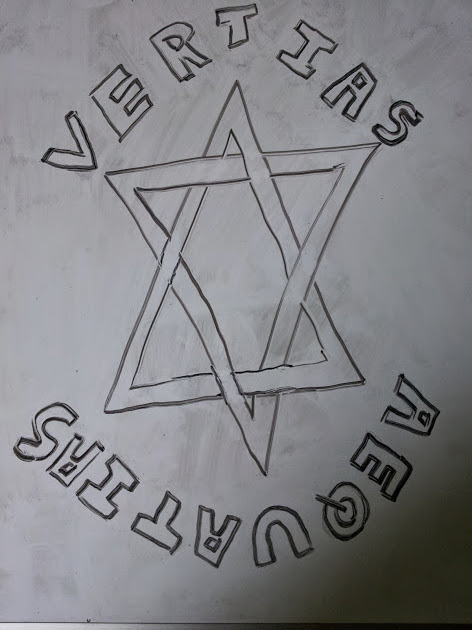 VERTIAS
AEQUATIAS